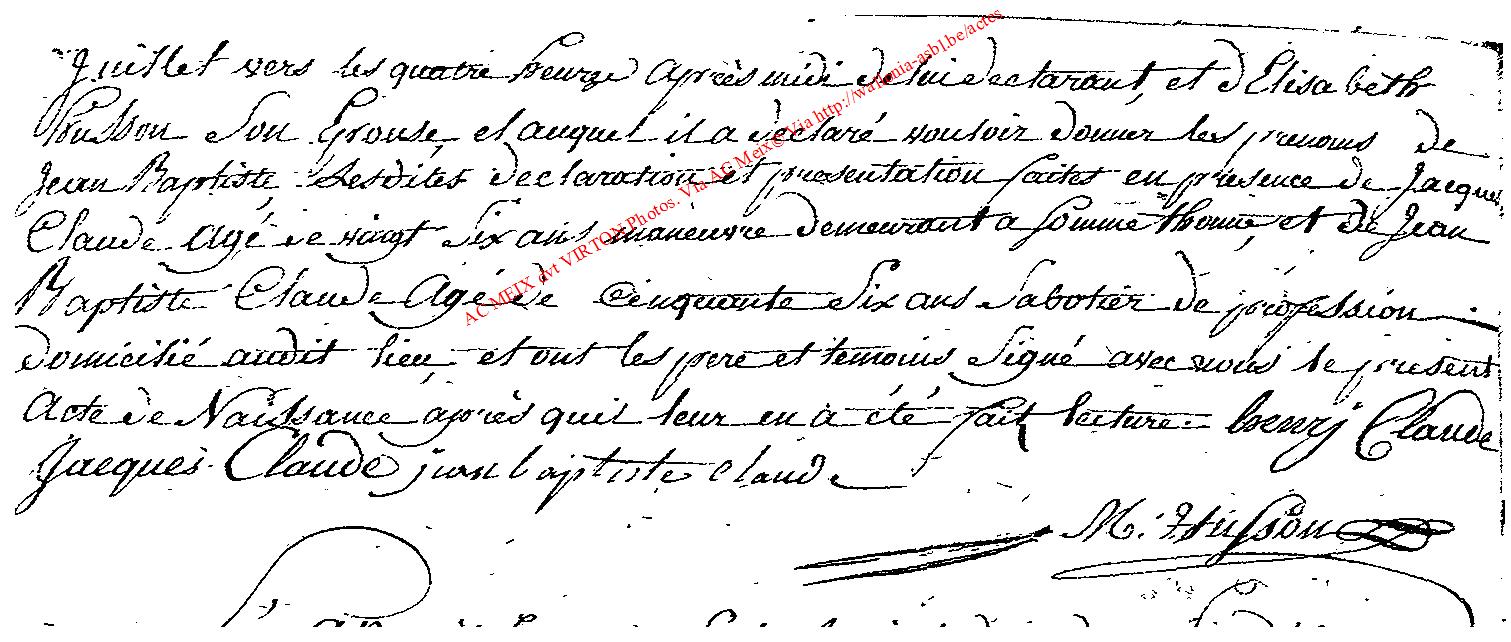 Juillet vers les quatre heures après midi de lui declarant, et d'Elisabeth
husson Son Epouse, et auquel il a declaré vouloir donner les prenoms de
Jean Baptiste, Lesdites declaration et presentation faites en presence de Jacques
Claude Agé de vingt Six ans manœuvre demeurant a Sommethonne, et de Jean
Baptiste Claude Agé de Cinquante Six ans Sabotier de profession
domicilié audit lieu, et ont les pere et temoins Signé avec nous le present
Acte de Naissance après quil leur en a été fait lecture. henrj Claude
Jacques Claude jean baptiste Claude
M. Husson
AC MEIX dvt VIRTON Photos. Via AG Meix© Via http://wallonia-asbl.be/actes